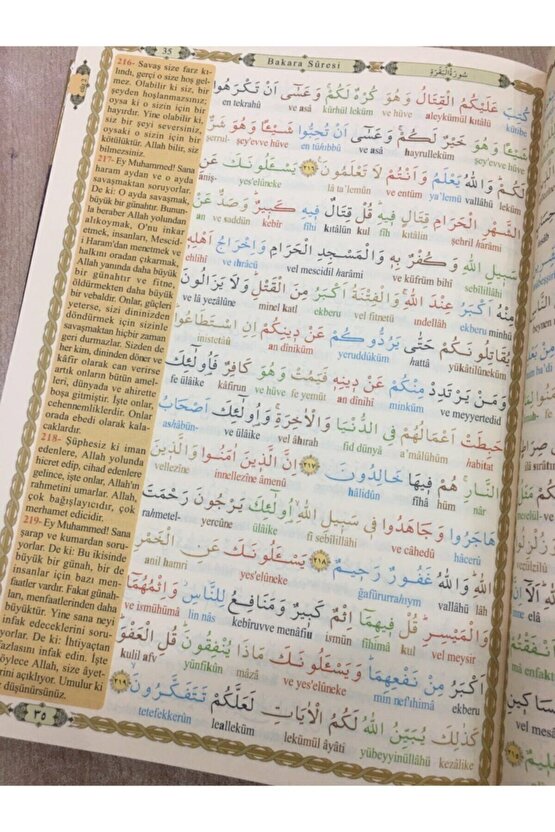 35
Bakara Sûresi
سُورَةُ الْبَقَرَةِ
216- Savaş size farz kı-
lındı, gerçi o size hoş gel-
mez. Olabilir ki siz, bir
şeyden hoşlanmazsınız;
oysa ki o sizin için bir
hayırdır. Yine olabilir ki
siz bir şeyi seversiniz,
oysaki o sizin için bir
kötülüktür. Allah bilir, siz
bilmezsiniz.
217- Ey Muhammed! Sana
haram aydan ve o ayda
savaşmaktan soruyorlar.
De ki: O ayda savaşmak,
büyük bir günahtır. Bunun-
la beraber Allah yolundan
alıkoymak, O'nu inkar
etmek, insanları, Mescid-i
Haram'dan menetmek ve
halkını oradan çıkarmak
Allah yanında daha büyük
bir günahtır ve fitne,
öldürmekten daha büyük
bir vebaldir. Onlar, güçleri
yeterse, sizi dininizden
döndürmek için sizinle
savaşmaktan hiçbir zaman
geri durmazlar. Sizden de
her kim, dininden döner ve
kâfir olarak can verirse
artık onların bütün amel-
leri, dünyada ve ahirette
boşa gitmiştir. İşte onlar,
cehennemliklerdir. Onlar
orada ebedi olarak kala-
caklardır.
218- Şüphesiz ki iman
edenlere, Allah yolunda
hicret edip, cihad edenlere
gelince, işte onlar, Allah'ın
rahmetini umarlar. Allah,
çok bağışlayıcıdır, çok
merhamet edicidir.
219- Ey Muhammed! Sana
şarap ve kumardan soru-
yorlar. De ki: Bu ikisinde
büyük bir günah, bir de
insanlar için bazı men-
faatler vardır. Fakat günah-
ları, menfaatlerinden daha
büyüktür. Yine sana neyi
infak edeceklerini soru-
yorlar. De ki: İhtiyaçtan
fazlasını infak edin. İşte
böylece Allah, size âyet-
lerini açıklıyor. Umulur ki
düşünürsünüz.
كُتِبَ عَلَيْكُمُ الْقِتَالُ وَهُوَ كُرْهٌ لَكُمْ وَعَسٰٓى اَنْ تَكْرَهُوا
kütibe aleykümül kıtâlü ve hüve kürhül leküm ve asâ en tekrahû
شَيْئًا وَهُوَ خَيْرٌ لَكُمْ وَعَسٰٓى اَنْ تُحِبُّوا شَيْئًا وَهُوَ شَرٌّ
şey'evve hüve hayrulleküm ve asâ en tühıbbû şey'evve hüve şerrul-
لَكُمْ وَاللّٰهُ يَعْلَمُ وَاَنْتُمْ لَا تَعْلَمُونَ ﴿٢١٦﴾ يَسْـَٔلُونَكَ عَنِ
leküm vallâhü ya'lemü ve entüm lâ ta'lemûn yes'elûneke aniş-
الشَّهْرِ الْحَرَامِ قِتَالٍ فِيهِ قُلْ قِتَالٌ فِيهِ كَبِيرٌ وَصَدٌّ عَنْ
şehril harâmi kıtâlin fih kul kıtâlün fihi kebîr ve saddün an
سَبِيلِ اللّٰهِ وَكُفْرٌ بِهِ وَالْمَسْجِدِ الْحَرَامِ وَاِخْرَاجُ اَهْلِهِ
sebîlillâhi ve küfrüm bihî vel mescidil harâmi ve ıhrâcü ehlihî
مِنْهُ اَكْبَرُ عِنْدَ اللّٰهِ وَالْفِتْنَةُ اَكْبَرُ مِنَ الْقَتْلِ وَلَا يَزَالُونَ
minhü ekberu ındellâh vel fitnetü ekberu minel katl ve lâ yezâlûne
يُقَاتِلُونَكُمْ حَتّٰى يَرُدُّوكُمْ عَنْ دِينِكُمْ اِنِ اسْتَطَاعُوا
yükâtilûneküm hattâ yerudduküm an dîniküm inistetâû
وَمَنْ يَرْتَدِدْ مِنْكُمْ عَنْ دِينِهِ فَيَمُتْ وَهُوَ كَافِرٌ فَاُولٰٓئِكَ
ve meyyertedid minküm an dînihî fe yemüt ve hüve kâfirun fe ülâike
حَبِطَتْ اَعْمَالُهُمْ فِي الدُّنْيَا وَالْاٰخِرَةِ وَاُولٰٓئِكَ اَصْحَابُ
habitat a'mâlühüm fid dünyâ vel âhırah ve ülâike ashâbün-
النَّارِ هُمْ فِيهَا خَالِدُونَ ﴿٢١٧﴾ اِنَّ الَّذِينَ اٰمَنُوا وَالَّذِينَ
nâr hüm fîhâ hâlidûn innellezîne âmenû vellezîne
هَاجَرُوا وَجَاهَدُوا فِي سَبِيلِ اللّٰهِ اُولٰٓئِكَ يَرْجُونَ رَحْمَتَ
hâcerû ve câhedû fî sebîlillâhi ülâike yercûne rahmetel-
اللّٰهِ وَاللّٰهُ غَفُورٌ رَحِيمٌ ﴿٢١٨﴾ يَسْـَٔلُونَكَ عَنِ الْخَمْرِ
lâh vallâhü ğafûrurrahıym yes'elûneke anil hamri
وَالْمَيْسِرِ قُلْ فِيهِمَا اِثْمٌ كَبِيرٌ وَمَنَافِعُ لِلنَّاسِ وَاِثْمُهُمَا
vel meysir kul fîhimâ ismün kebîruvve menâfiu lin nâs ve ismühümâ
اَكْبَرُ مِنْ نَفْعِهِمَا وَيَسْـَٔلُونَكَ مَاذَا يُنْفِقُونَ قُلِ الْعَفْوَ
ekberu min nef'ıhimâ ve yes'elûneke mâzâ yünfikûn kulil afv
كَذٰلِكَ يُبَيِّنُ اللّٰهُ لَكُمُ الْاٰيَاتِ لَعَلَّكُمْ تَتَفَكَّرُونَ ﴿٢١٩﴾
kezâlike yübeyyinüllâhü lekümül âyâti lealleküm tetefekkerûn
٣٥